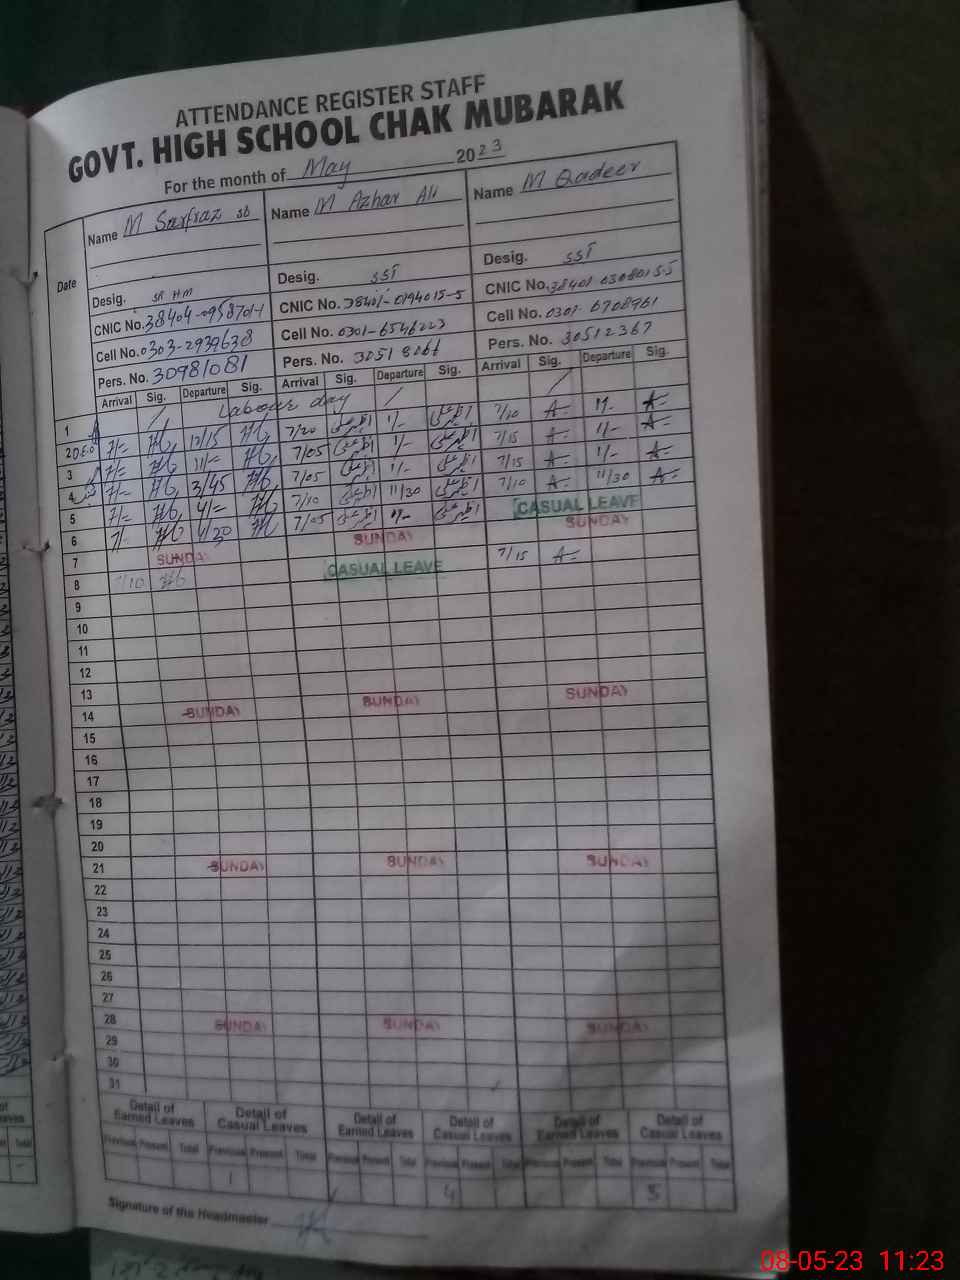 ATTENDANCE REGISTER STAFF
GOVT. HIGH SCHOOL CHAK MUBARAK
For the month of May 2023
Date
Name M Sarfraz sb
Name M Azhar Ali
Name M Qadeer
Desig. SR HM
Desig. SST
Desig. SST
CNIC No. 38404-0958701-1
CNIC No. 38401-0194015-5
CNIC No. 38401-0308015-5
Cell No. 0303-2939638
Cell No. 0301-6546223
Cell No. 0307-6708961
Pers. No. 30981081
Pers. No. 30518066
Pers. No. 30512367
Arrival Sig. Departure Sig. Arrival Sig. Departure Sig. Arrival Sig. Departure Sig.
1 Labour day
2 7/= 12/15 7/20 1/- 7/10 1/-
3 7/= 11/- 7/05 1/- 7/15 1/-
4 7/- 3/45 7/05 1/- 7/15 1/-
5 7/= 4/= 7/10 11/30 7/10 11/30
6 7/- 4/30 7/05 1/- CASUAL LEAVE
7 SUNDAY SUNDAY SUNDAY
8 7/10 CASUAL LEAVE 7/15
9
10
11
12
13
14 SUNDAY SUNDAY SUNDAY
15
16
17
18
19
20
21 SUNDAY SUNDAY SUNDAY
22
23
24
25
26
27
28 SUNDAY SUNDAY SUNDAY
29
30
31
Detail of Earned Leaves Detail of Casual Leaves Detail of Earned Leaves Detail of Casual Leaves Detail of Earned Leaves Detail of Casual Leaves
Previous Present Total Previous Present Total Previous Present Total Previous Present Total Previous Present Total Previous Present Total
1 4 5
Signature of the Headmaster
08-05-23 11:23